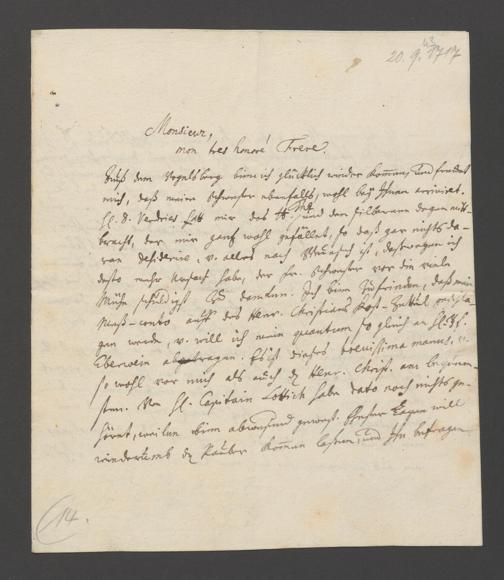 20. 9. 1717
Monsieur,
mon tres honoré Frere.
dem Vogelsberg bin ich glücklich wieder kommen, und
mich, daß meine Schwester ebenfalls, wohl bey Ihnen arrivirt.
H. D. Verdries hatt mir das und den silbernen degen mit-
bracht, der mir gantz wohl gefället, so daß gar nichts da-
ran v. alles nach ist, deswegen ich
desto mehr Ursach habe, der Fr. Schwester vor die viele
Mühe schuldigst zu dancken. Ich bin zufrieden, daß mein
conto auff des Henr. Christians Kost-Zettul
gen werde, v. will ich mein quantum so gleich an
Eberwein abtragen. Es ist dieses brevissima manus, v.
so wohl vor mich als auch den Henr. Christ. am
sten. Von H. Capitain Lottich habe dato noch nichts ge-
höret, weilen ihn abwesend gewest. Tagen will
wiederumb den kommen lassen, und Ihn befragen
14.